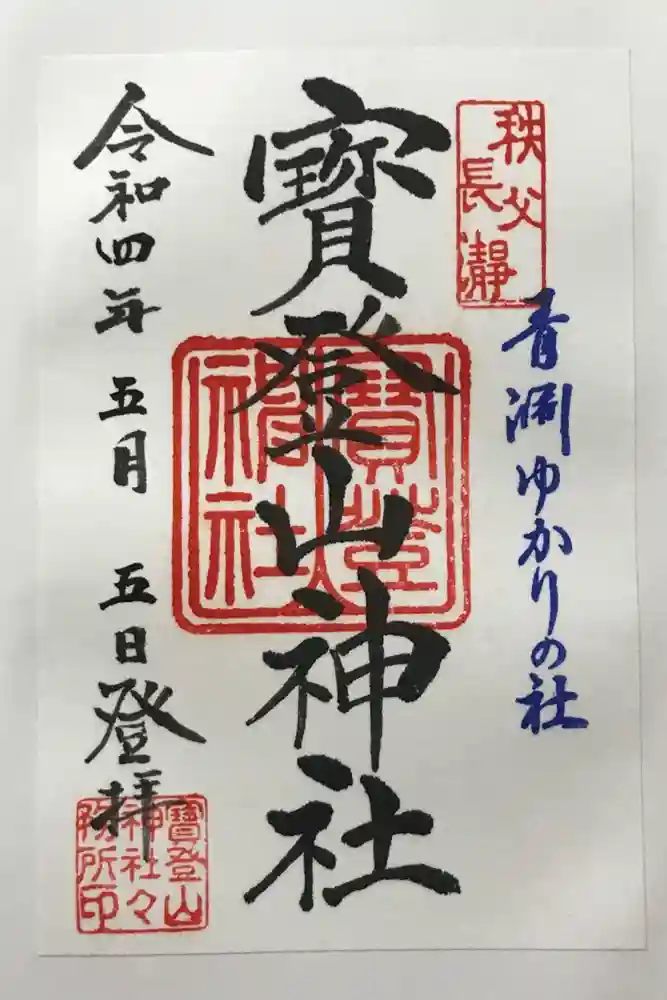 秩父
長瀞
青淵ゆかりの社
寳登山神社
寳登山
神社
令和四年 五月 五日登拝
寳登山
神社々
務所印